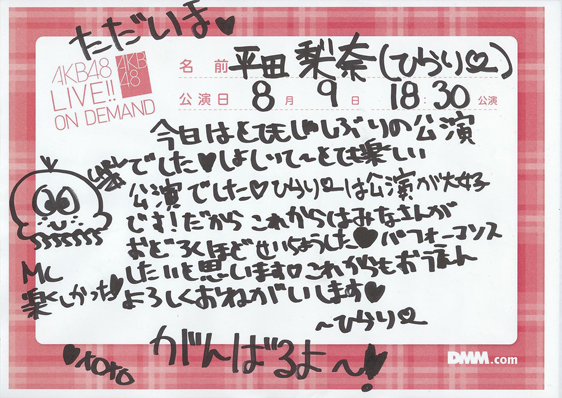 ただいま♥
AKB48
LIVE!!
ON DEMAND
AKB
48
名前 平田 梨奈(ひらりー)
公演日 8月 9日 18:30 公演
今日はとてもひしぶりの公演
でした♥しょじいて〜とても楽しい
公演でした♡ひらりーは公演が大好
です!だから これからはみなさんが
おどろくほどせいちょうした♥パフォーマンス
したいと思います♡これからもおうえん
よろしくおねがいします♥
〜ひらりー
MC
楽しかった♥
がんばるよ〜!
♥xoxo
DMM.com